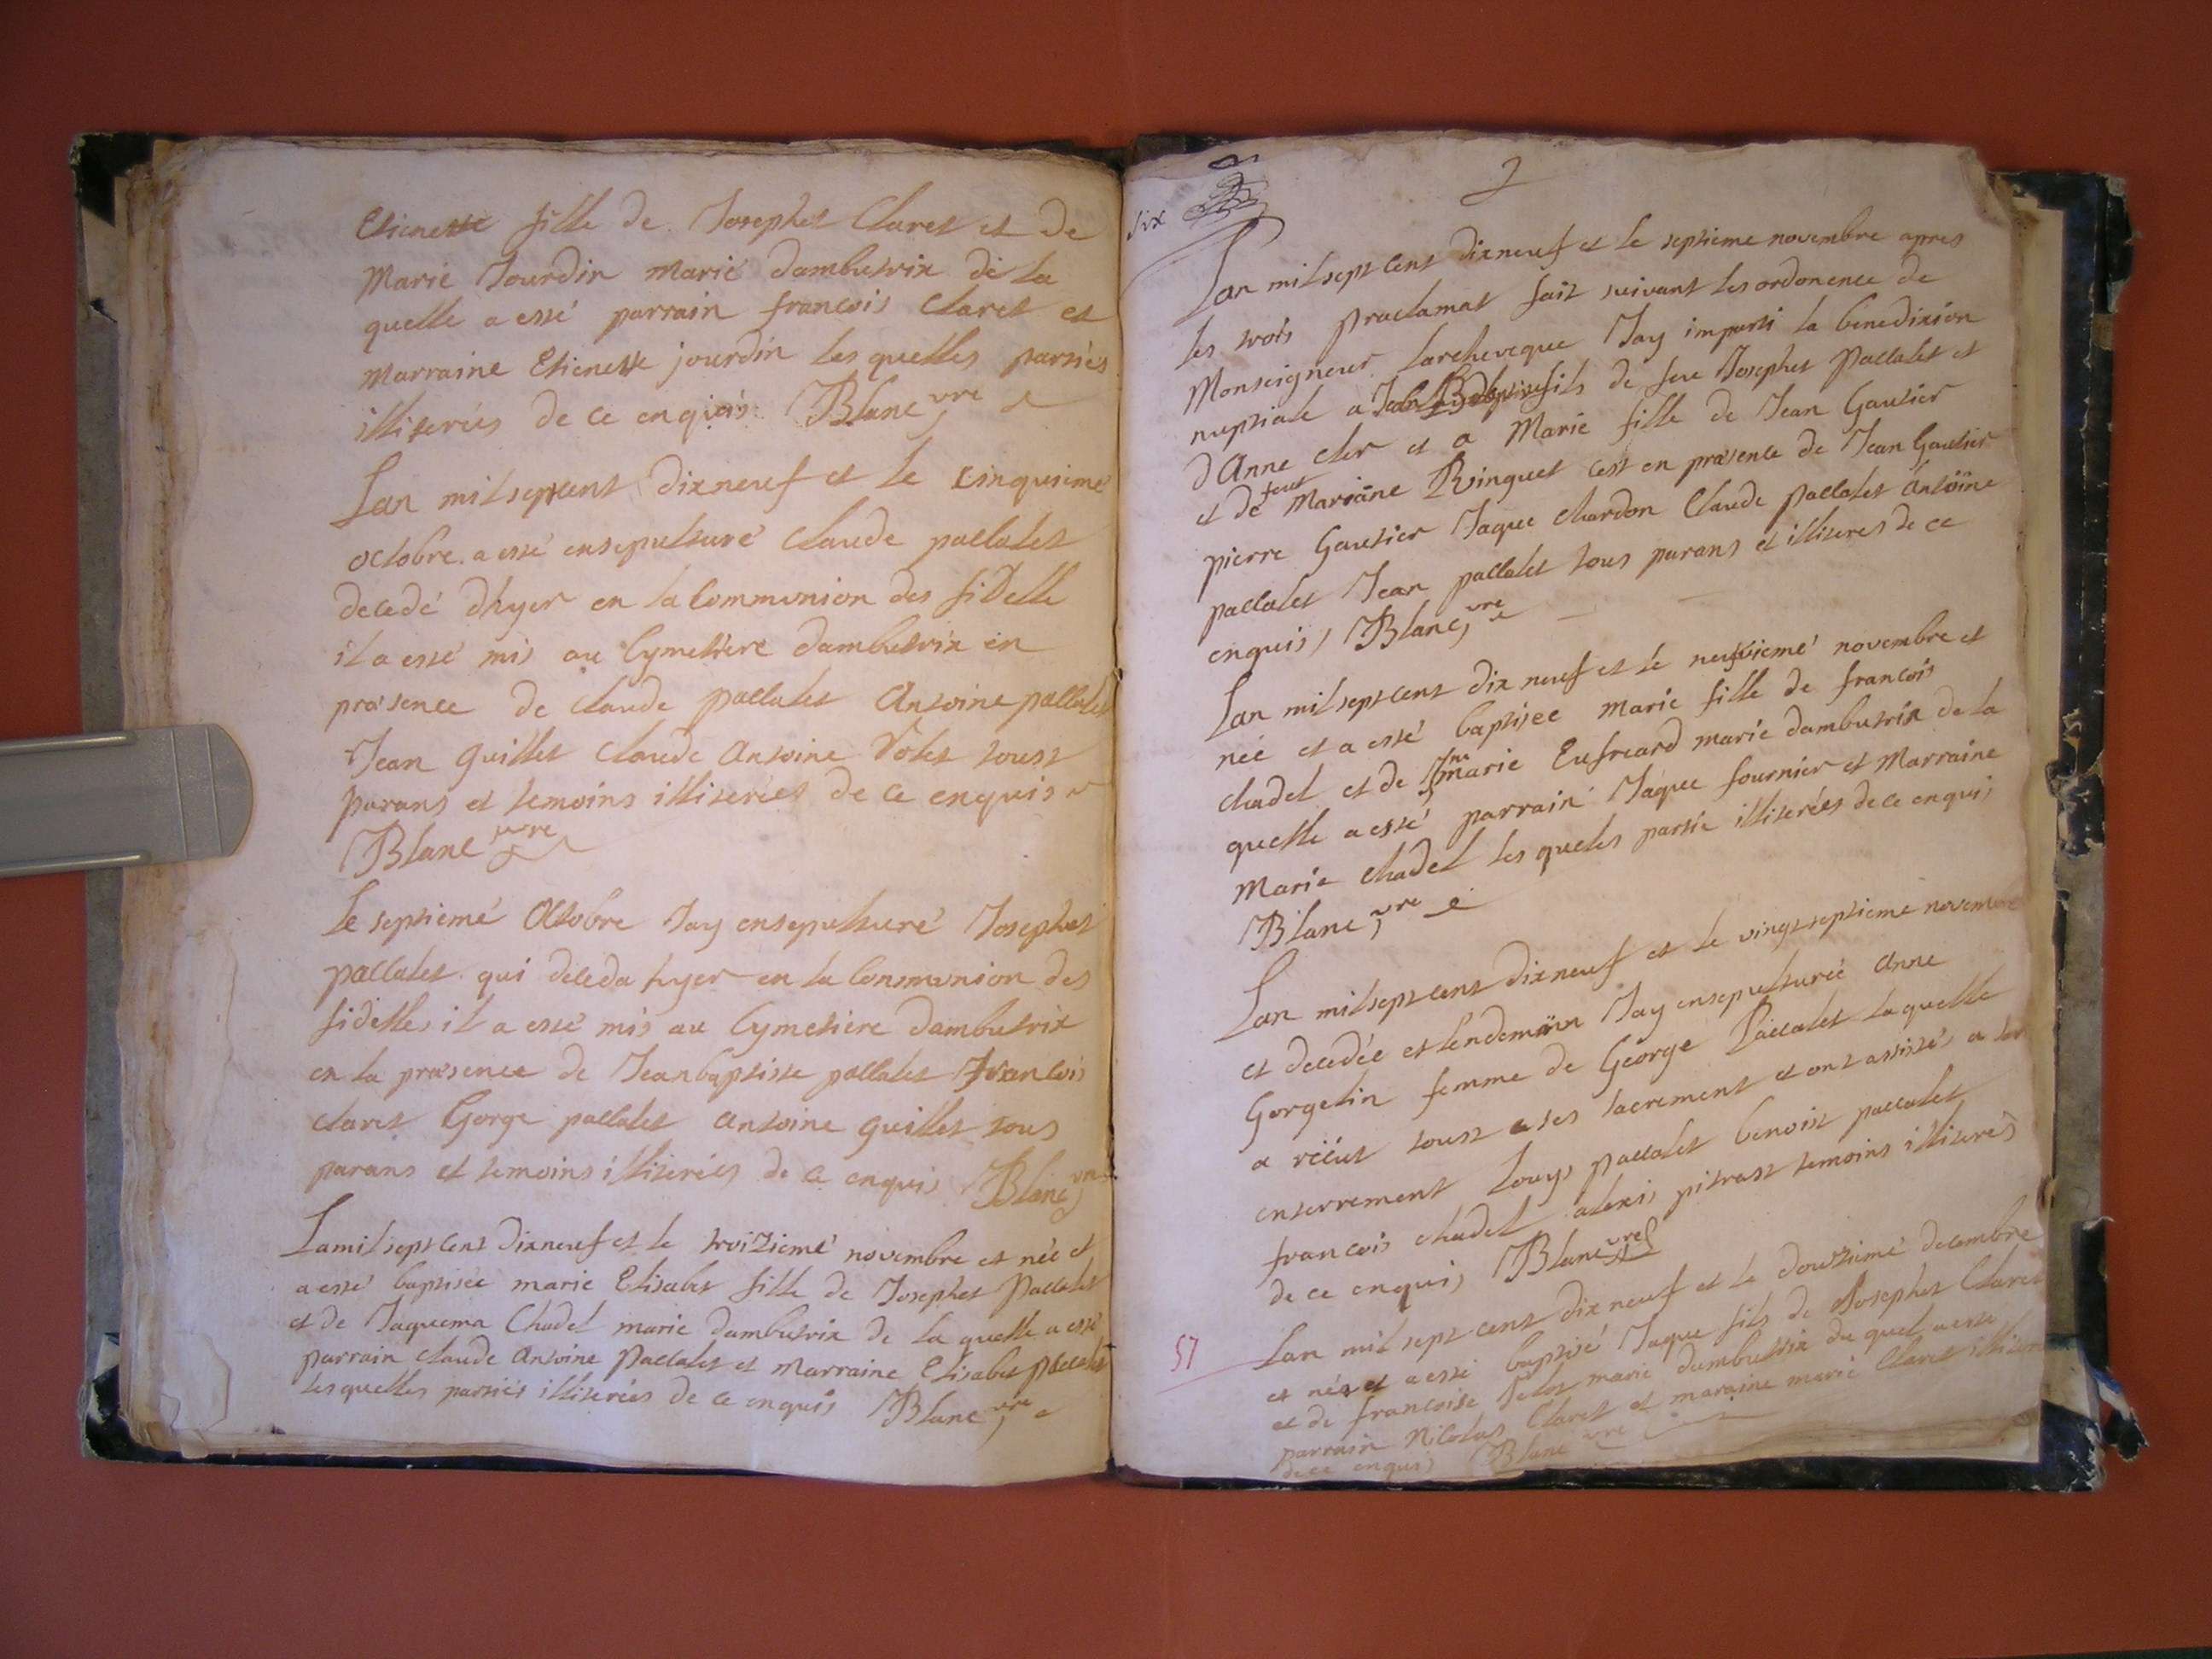 Etienette fille de Josephet Claret et de
Marie Jourdin marié dambutrix de la
quelle a esté parrain francois Claret et
marraine Etienette jourdin les quelles parties
illiterées de ce enquis Blanc vre
Lan mil sept cent dixneuf et le cinquieme
octobre a esté ensepulturé Claude paccalet
decedé dhyer en la Communion des fidelle
il a esté mis au Cymetiere dambutrix en
præsence de claude paccalet Antoine paccalet
Jean Guillet Claude Antoine Volet toust
parans et temoins illiterées de ce enquis
Blanc vre
Le septiemé Octobre Jay ensepulturé Josephet
paccalet qui deceda hyer en la Communion des
fidelles il a esté mis au Cymetiere dambutrix
en la præsence de Jeanbaptiste paccalet francois
claret Gorge paccalet Antoine Guillet tous
parans et temoins illiterées de ce enquis Blanc vre
Lamil sept cent dixneuf et le troiziemé novembre et née et
a esté baptisée marie Elisabet fille de Josephet Paccalet
et de Jaquema Chadel marié dambutrix de la quelle a esté
parrain claude Antoine Paccalet et marraine Elisabet paccalet
lesquelles parties illiterées de ce enquis Blanc vre
six
Lan mil sept cent dixneuf et le septieme novembre apres
les trois proclamat fait suivant les ordonence de
Monseigneur larcheveque Jay imparti la benedixion
nuptiale a Jean Baptiste fils de feu Josephet Paccalet et
dAnne cler et a Marie fille de Jean Gautier
et de feue Mariane Ringuet cest en præsence de Jean Gautier
pierre Gautier Jaque chardon Claude paccalet Antoine
paccalet Jean paccalet tous parans et illiteres de ce
enquis Blanc vre
Lan mil sept cent dix neuf et le neufviemé novembre et
née et a esté baptisee marie fille de francois
chadel et de marie Eufreard marié dambutrix de la
quelle a esté parrain Jaque fournier et Marraine
Marie chadel les queles partie illiterées de ce enquis
Blanc vre
Lan mil sept cent dixneuf et le vingt septieme novembre
et decedée et lendemain Jay ensepulturée Anne
Gorgelin femme de George Paccalet laquelle
a réçut toust ses sacrement et ont assistés a son
enterrement Louys paccalet benoist paccalet
francois chadel alexis pitrast temoins illiterés
de ce enquis Blanc vre
57
Lan mil sept cent dix neuf et le douziemé decembre
et née et a esté baptisé Jaque fils de Josephet Claret
et de francoise Velet marié dambutrix du quel a esté
parrain Nicolas Claret et maraine marie Claret
de ce enquis Blanc vre